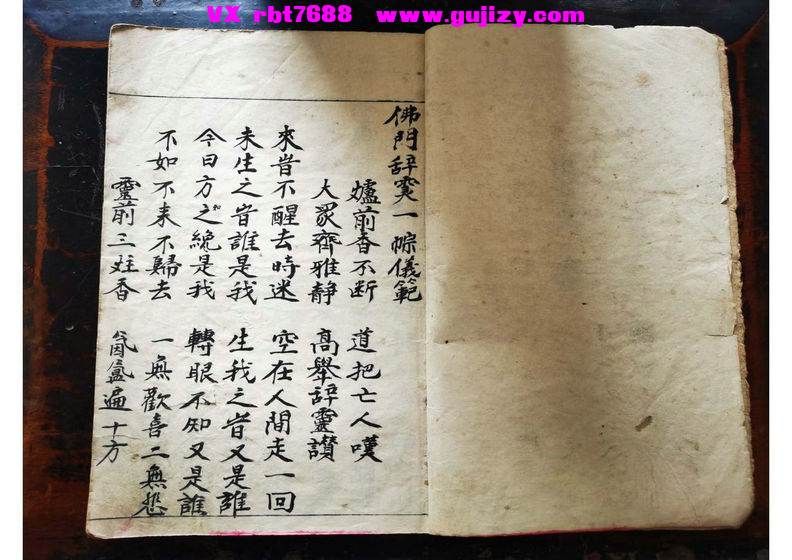 VX rbt7688 www.gujizy.com
佛門辞灵一儀範
爐前香不斷 道把亡人嘆
大眾齊雅静 高舉辞靈讃
來旹不醒去時迷 空在人間走一回
未生之旹誰是我 生我之旹又是誰
今日方之知纔是我 轉眼不知又是誰
不如不来不歸去 一無歡喜二無悲
靈前三炷香 氤氳遍十方